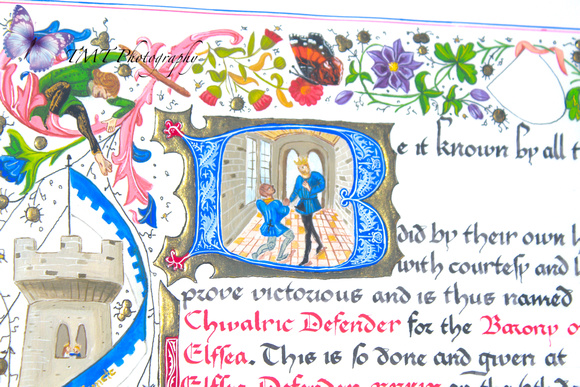 TMT Photography
Be it known by all t
did by their own h
with courtesy and
prove victorious and is thus named
Chivalric Defender for the Barony o
Elfsea. This is so done and given at
Elfsea Defender